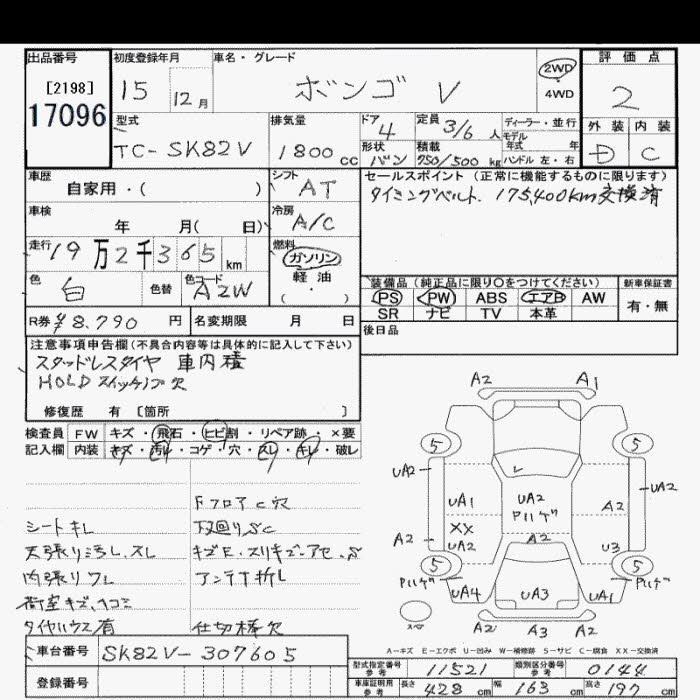 出品番号 初度登録年月 車名・グレード 評価点
[2198] 15 12月 ボンゴ V 2WD 4WD 2
17096
型式 排気量 ドア 4 定員 3/6人 ディーラー・並行 外装 内装
モデル年式 年
TC-SK82V 1800cc 形状 バン 積載 750/500kg ハンドル 左・右 D C
車歴 シフト セールスポイント(正常に機能するものに限ります)
自家用・( ) AT タイミングベルト、175,400km交換済
車検 冷房
年 月( 日) A/C
走行 19万2千365km 燃料
ガソリン
軽油
( ・ )
色 白 色替 色コード A2W 装備品(純正品に限り○をつけてください) 新車保証書
PS PW ABS エアB AW 有・無
SR ナビ TV 本革
R券 ¥8,790円 名変期限 月 日 後日品
注意事項申告欄(不具合内容等は具体的に記入して下さい)
スタッドレスタイヤ 車内積
HOLDスイッチノブ欠
修復歴 有 [箇所 ]
検査員 FW キズ・飛石・ヒビ割・リペア跡・×要
記入欄 内装 キズ・汚れ・コゲ・穴・スレ・キレ・破レ
Fフロア C 穴
シートキレ 下廻りSC
天張り汚レ、スレ キズE・スリキズ
内張りワレ アンテナ折レ
荷室キズ、ヘコミ
タイヤハウス有 仕切棒欠
A2 A1
5 5
UA2 UA1 UA2 Pハゲ A2 UA2
XX
A2 UA2 A2 U3
5 5
Pハゲ UA4 UA3 UA1 Pハゲ
スペ
A2 A3 A2
A-キズ E-エクボ U-凹み W-補修跡 S-サビ C-腐食 XX-交換済
車台番号 SK82V-307605
登録番号
型式指定番号 参考 11521 類別区分番号 参考 0144
車庫証明用 参考 長さ 428cm 幅 163cm 高さ 197cm